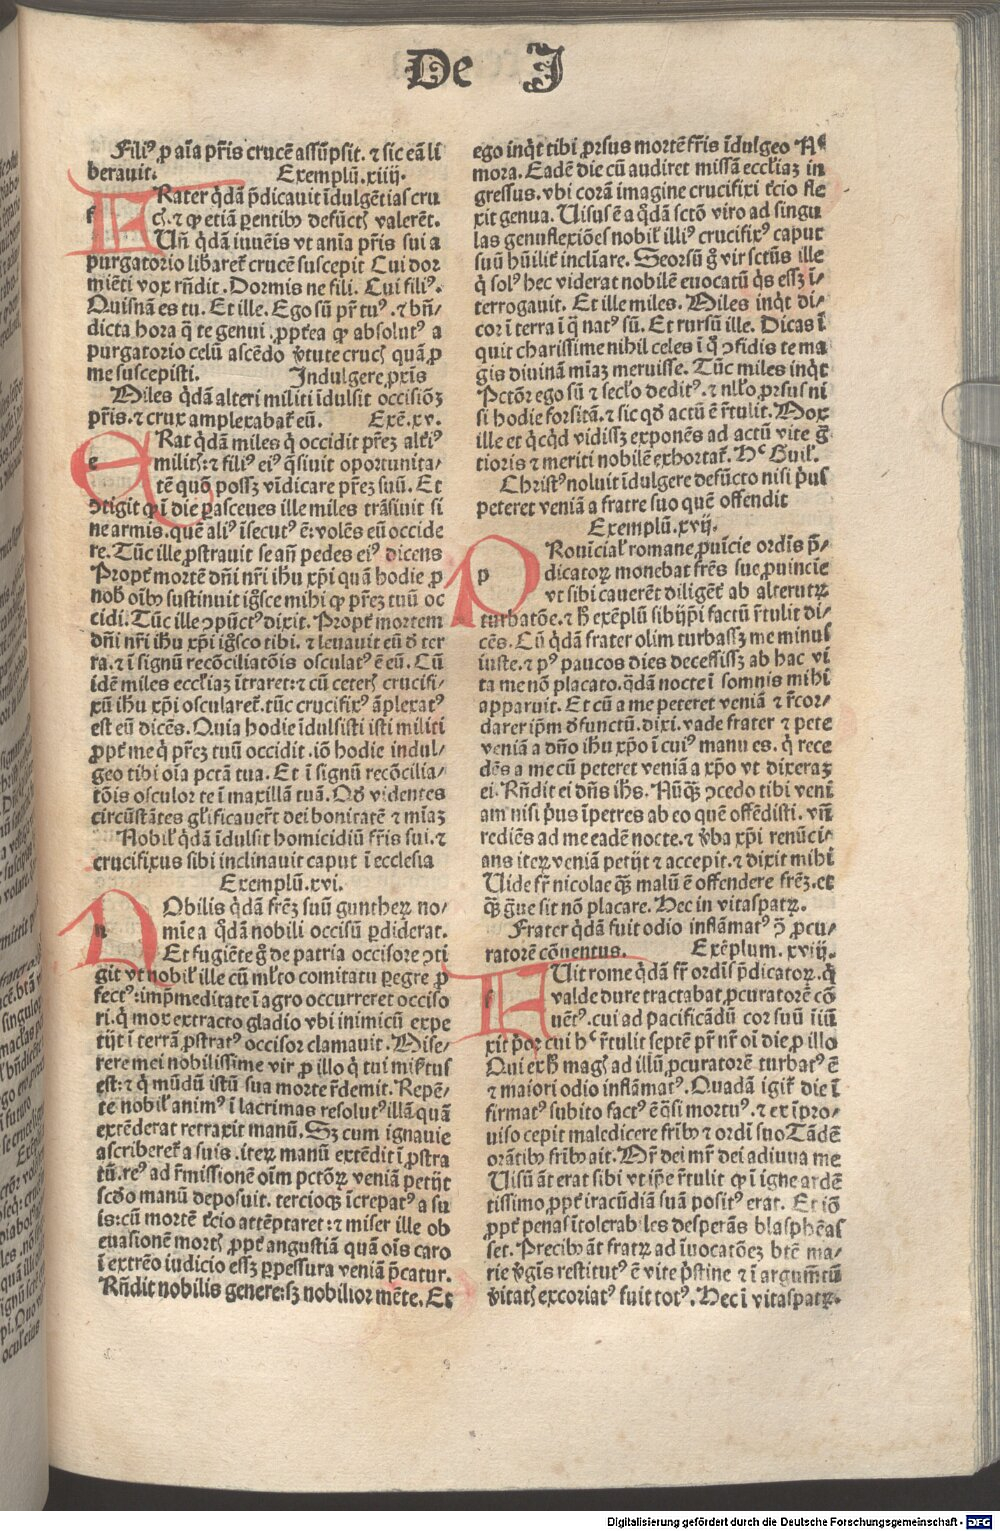 De J
Filiꝰ ꝓ aīa pr̄is crucē assūpsit. ⁊ sic eā li
berauit. Exemplū.xiiij.
FRater q̄dā p̄dicauit īdulgētias cru
cꝭ. ⁊ ꝙ etiā ꝑentibꝰ defūctꝭ valerēt.
Uñ q̄dā iuuēis vt anīa pr̄is sui a
purgatorio libarēt crucē suscepit Cui dor
miēti vox rñdit. Dormis ne fili. Cui filiꝰ.
Quisnā es tu. Et ille. Ego sū pr̄ tuꝰ. ⁊ bñ/
dicta hora q̄ te genui. ꝓptea ꝙ absolutꝰ a
purgatorio celū ascēdo v̄tute crucꝭ quā ꝓ
me suscepisti. Indulgere ꝓxīs
Miles q̄dā alteri militi īdulsit occisiōꝫ
pr̄is. ⁊ crux amplexabat̄ eū. Exē.xv.
ERat q̄dā miles q̄ occidit pr̄eꝫ altiꝰ
militꝭ: ⁊ filiꝰ eiꝰ q̄siuit oportunita/
tē quō possꝫ vīdicare pr̄eꝫ suū. Et
ↄtigit ꝙ ī die ꝑasceues ille miles trāsiuit si
ne armis. quē aliꝰ īsecutꝰ ē: volēs eū occide
re. Tūc ille ꝓstrauit se añ pedes eiꝰ dicens
Propt̄ mortē dñi nr̄i ihu xp̄i quā hodie ꝓ
nob̄ oībꝰ sustinuit īgsce mihi ꝙ pr̄eꝫ tuū oc
cidi. Tūc ille ↄpūctꝰ dixit. Propt̄ mortem
dñi nr̄i ihu xp̄i īgsco tibi. ⁊ leuauit eū d̄ ter
ra. ⁊ ī signū recōciliatōis osculatꝰ ē eū. Cū
idē miles eccl̄iaꝫ ītraret: ⁊ cū ceterꝭ crucifi/
xū ihu xp̄i oscularet̄. tūc crucifixꝰ āplexatꝰ
est eū dicēs. Quia hodie īdulsisti isti militi
ꝓpt̄ me q̄ pr̄eꝫ tuū occidit. iō hodie indul/
geo tibi oīa pctā tua. Et ī signū recōcilia/
tōis osculor te ī maxillā tuā. Qd̄ videntes
circūstātes gl̄ificauer̄t dei bonitatē ⁊ mīaꝫ
Nobil̄ q̄dā īdulsit homicidiū fr̄is sui. ⁊
crucifixus sibi inclinauit caput ī ecclesia
Exemplū.xvi.
NObilis q̄dā fr̄eꝫ suū guntheꝝ no/
mīe a q̄dā nobili occisū ꝑdiderat.
Et fugiēte g̊ de patria occisore ↄti
git vt nobil̄ ille cū ml̄to comitatu ꝑegre ꝓ
fectꝰ: imp̄meditate ī agro occurreret occiso
ri. q̄ mox extracto gladio vbi inimicū expe
tijt ī terrā ꝓstratꝰ occisor clamauit. Mise/
rere mei nobilissime vir ꝓ illo q̄ tui misertus
est: ⁊ q̄ mūdū istū sua morte r̄demit. Repē/
te nobil̄ animꝰ ī lacrimas resolutꝰ illā quā
extēderat retraxit manū. Sꝫ cum ignauie
ascriberet̄ a suis. iteꝝ manū extēdit ī ꝓstra
tū. reꝰ ad r̄missionē oīm pctōꝝ veniā petijt
scd̄o manū deposuit. tercioqꝫ īcrepatꝰ a su
is: cū mortē t̄cio attēptaret: ⁊ miser ille ob
euasionē mortꝭ ꝓpt̄ angustiā quā oīs caro
ī extrēo iudicio essꝫ ꝑpessura veniā p̄catur.
Rñdit nobilis genere: sꝫ nobilior mēte. Et
ego inq̄t tibi ꝓrsus mortē fr̄is īdulgeo Nᶜ
mora. Eadē die cū audiret missā eccl̄iaꝫ in
gressus. vbi corā imagine crucifixi t̄cio fle
xit genua. Uisus ē a q̄dā sctō viro ad singu
las genuflexiōes nobil̄ illiꝰ crucifixꝰ caput
suū hūilit̄ inclīare. Seorsū g̊ vir sctūs ille
q̄ solꝰ hec viderat nobilē euocatū q̄s essꝫ ī/
terrogauit. Et ille miles. Miles inq̄t di/
cor ī terra ī q̄ natꝰ sū. Et rursū ille. Dicas ī
quit charissime nihil celes ī q̄ ↄfidis te ma
gis diuinā mīaꝫ meruisse. Tūc miles inq̄t
Pctōr ego sū ⁊ seclo deditꝰ. ⁊ nllo ꝓrsus ni
si hodie forsitā. ⁊ sic qd̄ actū ē r̄tulit. Mox
ille et q̄cq̄d vidissꝫ exponēs ad actū vite g̊
tioris ⁊ meriti nobilē exhortat̄. Hᶜ Guil̄.
Christꝰ noluit īdulgere defūcto nisi p̄us
peteret veniā a fratre suo quē offendit
Exemplū.xvij.
PRouīcial̄ romane ꝓuīcie ordīs p̄/
dicatoꝝ monebat fr̄es sue ꝓuincie
vt sibi cauerēt diligēt̄ ab alterutꝝ
turbatōe. ⁊ h̄ exēplū sibijp̄i factū r̄tulit di/
cēs. Cū q̄dā frater olim turbassꝫ me minus
iuste. ⁊ pꝰ paucos dies decessissꝫ ab hac vi
ta me nō placato. q̄dā nocte ī somnis mihi
apparuit. Et cū a me peteret veniā ⁊ r̄cor/
darer ip̄m d̄functū. dixi. vade frater ⁊ pete
veniā a dño ihu xp̄o ī cuiꝰ manu es. q̄ rece
dēs a me cū peteret veniā a xp̄o vt dixeraꝫ
ei. Rñdit ei dñs ihs. Nūqꝫ ↄcedo tibi veni
am nisi p̄us īpetres ab eo quē offēdisti. vñ
rediēs ad me eadē nocte. ⁊ v̄ba xp̄i renūci/
ans iteꝝ veniā petijt ⁊ accepit. ⁊ dixit mihi
Uide fr̄ nicolae qꝫ malū ē offendere fr̄eꝫ. et
qꝫ g̊ue sit nō placare. Hec in vitaspatꝝ.
Frater q̄dā fuit odio inflāmatꝰ ↄ̄ ꝓcu/
ratorē cōuentus. Exēplum.xviij.
FUit rome q̄dā fr̄ ordīs p̄dicatoꝝ. q̄
valde dure tractabat̄ ꝓcuratorē cō
uētꝰ. cui ad pacificādū cor suū īiū
xit p̄or cui hᶜ r̄tulit septē pr̄ nr̄ oī die. ꝓ illo
Qui exh̄ magꝭ ad illū ꝓcuratorē turbatꝰ ē
⁊ maiori odio inflāmatꝰ. Quadā igit̄ die ī
firmatꝰ subito factꝰ ē q̄si mortuꝰ. ⁊ ex īpro/
uiso cepit maledicere fr̄ibꝰ ⁊ ordī suo Tādē
orātibꝰ fr̄ibꝰ ait. Mr̄ dei mr̄ dei adiuua me
Uisū āt erat sibi vt ip̄e r̄tulit ꝙ ī igne ardē
tissimo ꝓpt̄ iracūdiā suā positꝰ erat. Et iō
ꝓpt̄ penas ītolerabiles desperās blasphēas
set. Precibꝰ āt fratꝝ ad īuocatōeꝫ btē ma/
rie v̄gīs restitutꝰ ē vite p̄stine ⁊ ī argumētū
v̄itatꝭ excoriatꝰ fuit totꝰ. Hec ī vitaspatꝝ.
Digitalisierung gefördert durch die Deutsche Forschungsgemeinschaft - DFG